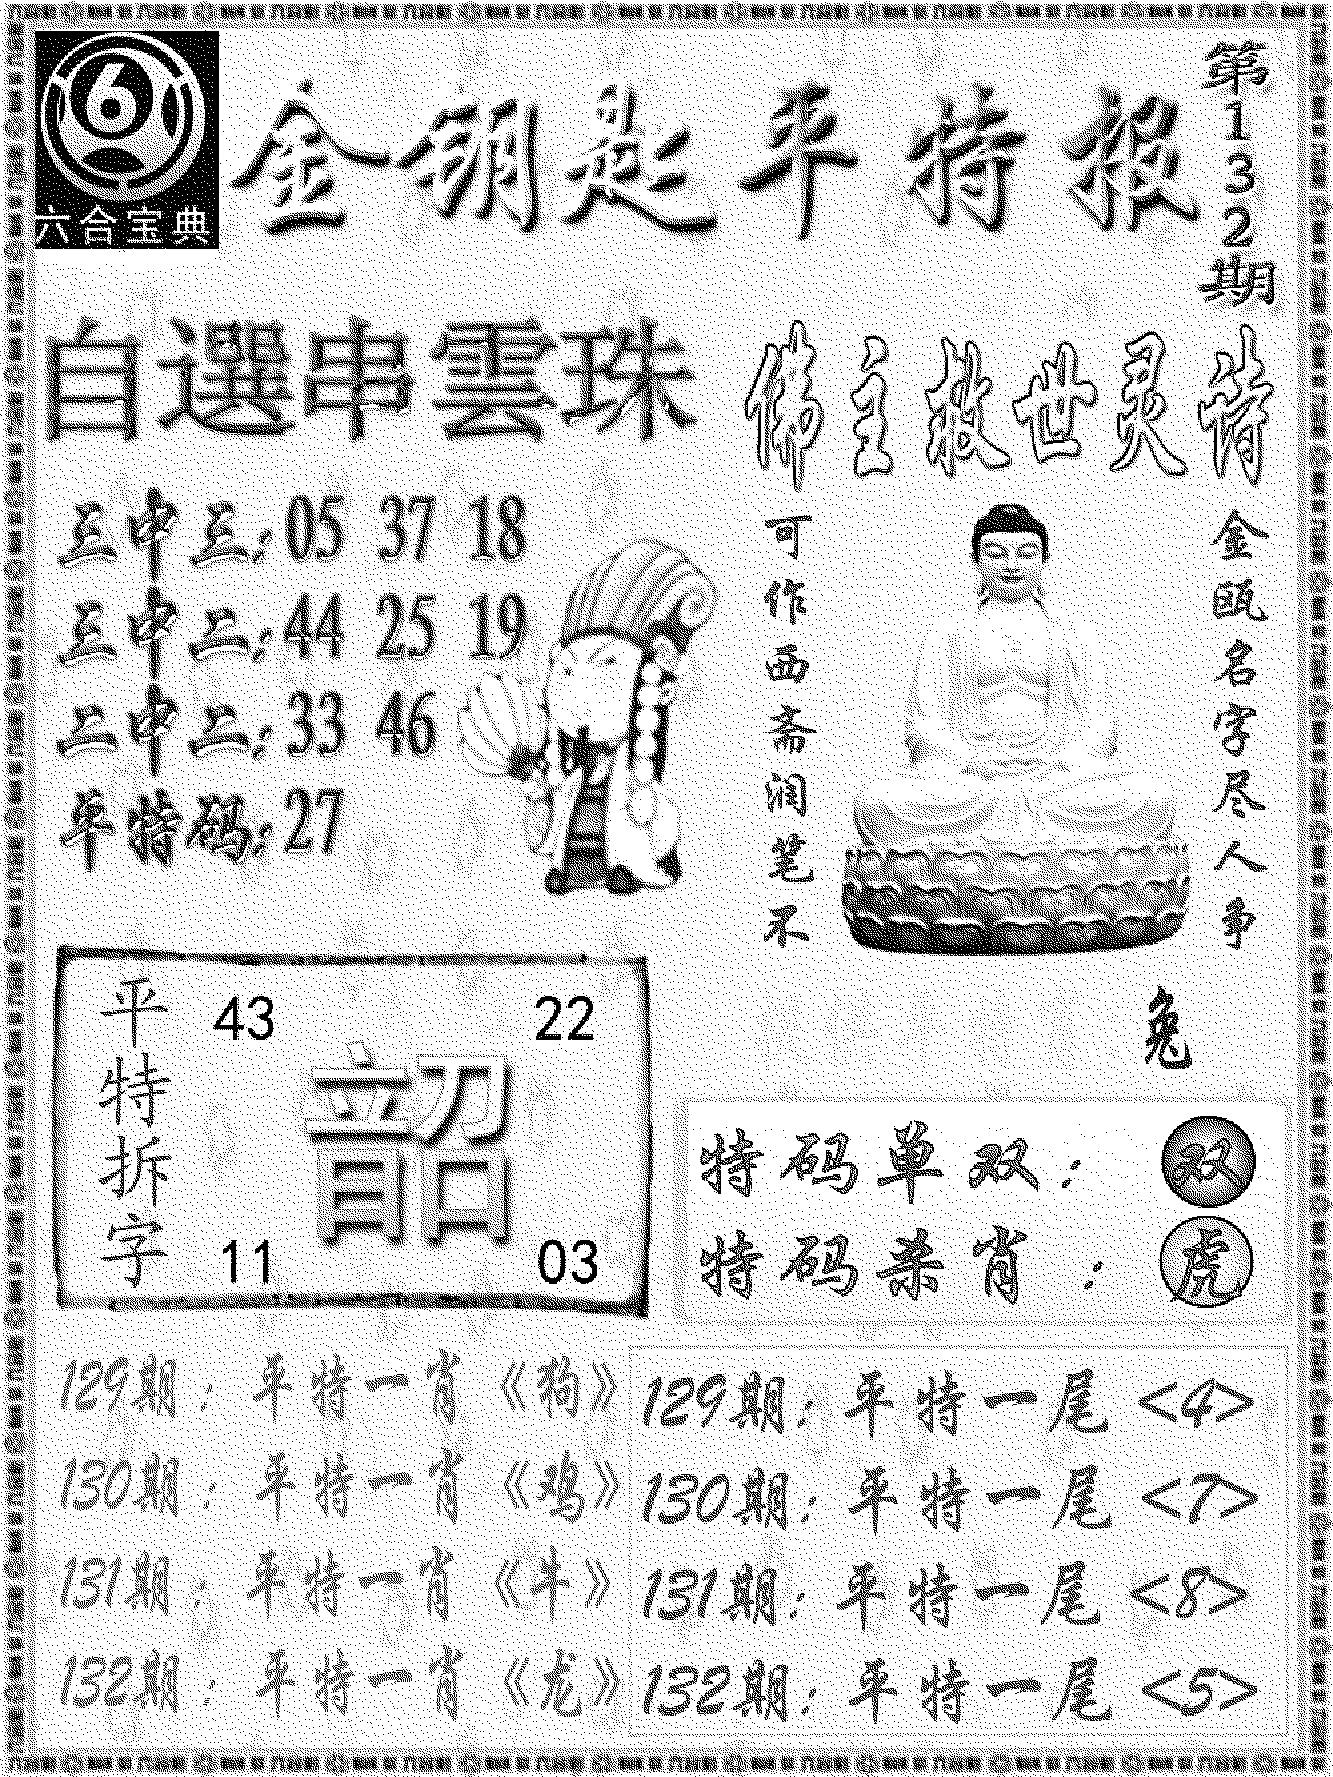 6
六合宝典
金钥匙平特报
第132期
自選串雲珠
三中三:05 37 18
三中二:44 25 19
二中二:33 46
平特码:27
佛主救世灵诗
金瓯名字尽人争
可作西斋润笔不
兔
平特拆字
43 22
韶
11 03
特码单双: 双
特码杀肖: 虎
129期:平特一肖《狗》
130期:平特一肖《鸡》
131期:平特一肖《牛》
132期:平特一肖《龙》
129期:平特一尾<4>
130期:平特一尾<7>
131期:平特一尾<8>
132期:平特一尾<5>